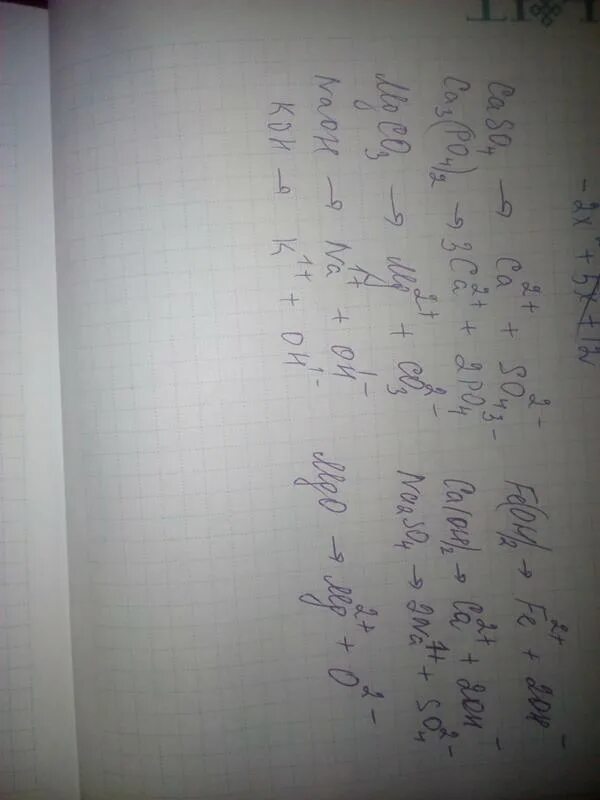 -2x² + 5x + 12
CaSO₄ → Ca²⁺ + SO₄²⁻
Ca₃(PO₄)₂ → 3Ca²⁺ + 2PO₄³⁻
MgCO₃ → Mg²⁺ + CO₃²⁻
NaOH → Na¹⁺ + OH¹⁻
KOH → K¹⁺ + OH¹⁻
Fe(OH)₂ → Fe²⁺ + 2OH⁻
Ca(OH)₂ → Ca²⁺ + 2OH⁻
Na₂SO₄ → 2Na¹⁺ + SO₄²⁻
MgO → Mg²⁺ + O²⁻